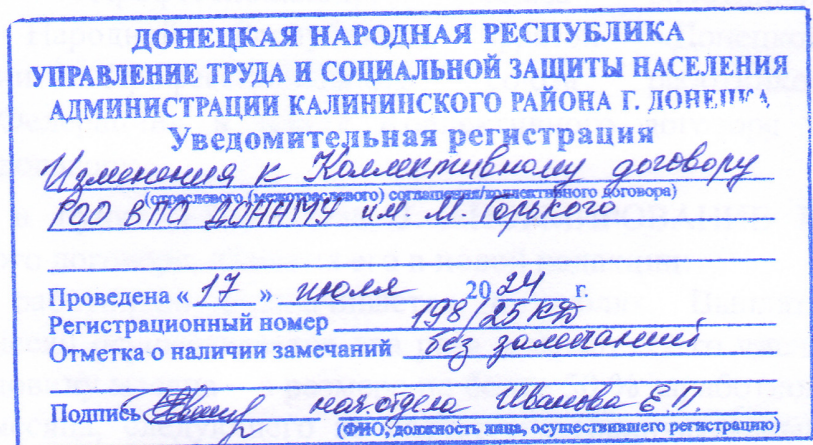 ДОНЕЦКАЯ НАРОДНАЯ РЕСПУБЛИКА
УПРАВЛЕНИЕ ТРУДА И СОЦИАЛЬНОЙ ЗАЩИТЫ НАСЕЛЕНИЯ
АДМИНИСТРАЦИИ КАЛИНИНСКОГО РАЙОНА Г. ДОНЕЦКА
Уведомительная регистрация
Изменения к Коллективному договору
(отраслевого (межотраслевого) соглашения/коллективного договора)
ГОО ВПО ДОННМУ им. М. Горького
Проведена « 17 » июля 2024 г.
Регистрационный номер 198/25 КД
Отметка о наличии замечаний без замечаний
Подпись нач. отдела Иванова Е.П.
(ФИО, должность лица, осуществившего регистрацию)